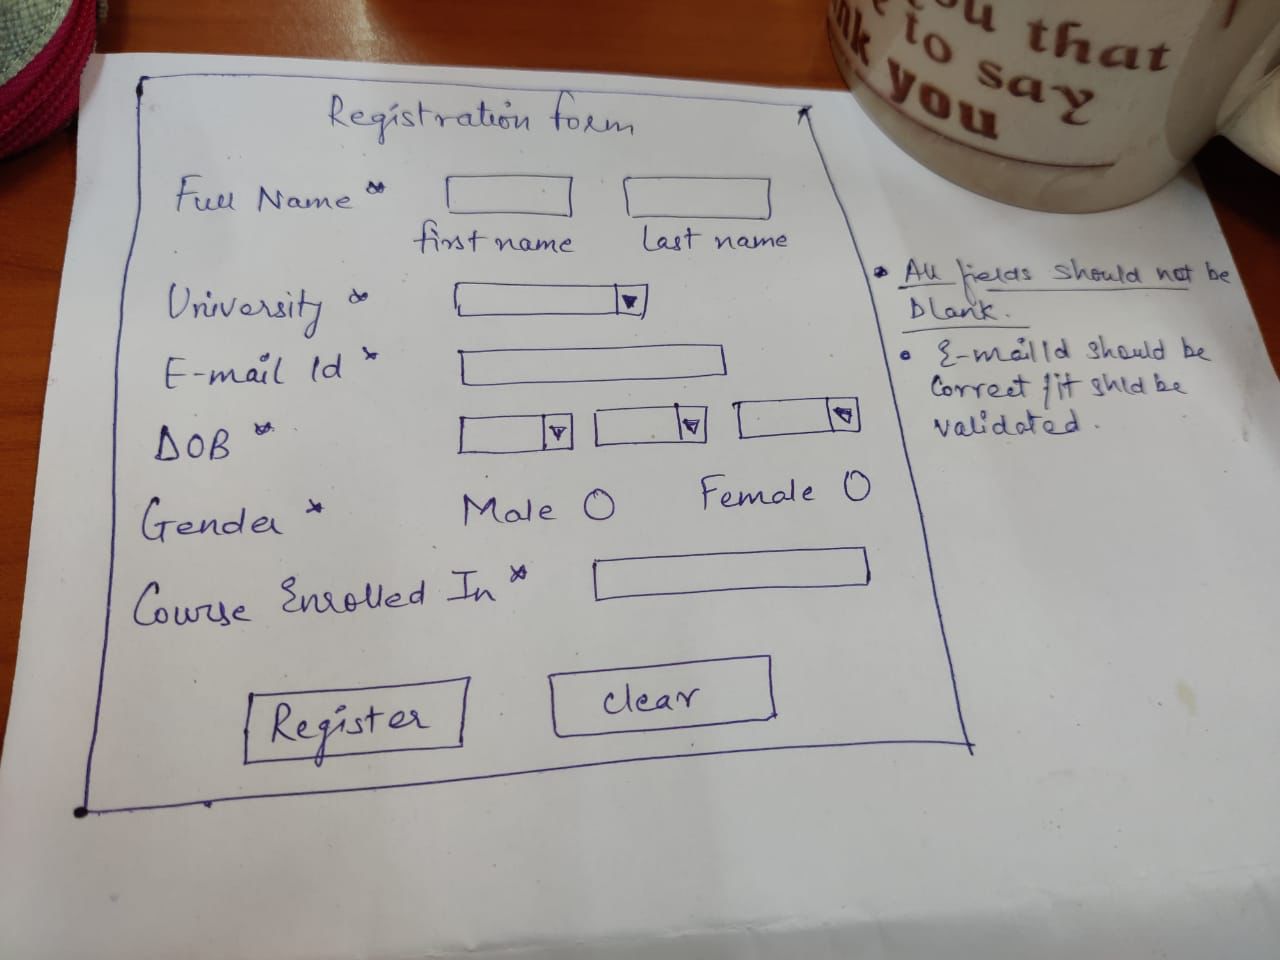 Registration form
Full Name *
first name last name
University *
E-mail Id *
DOB *
Gender * Male Female
Course Enrolled In *
Register clear
• All fields should not be
blank.
• E-mail Id should be
correct /it shld be
validated.
you that
to say
you